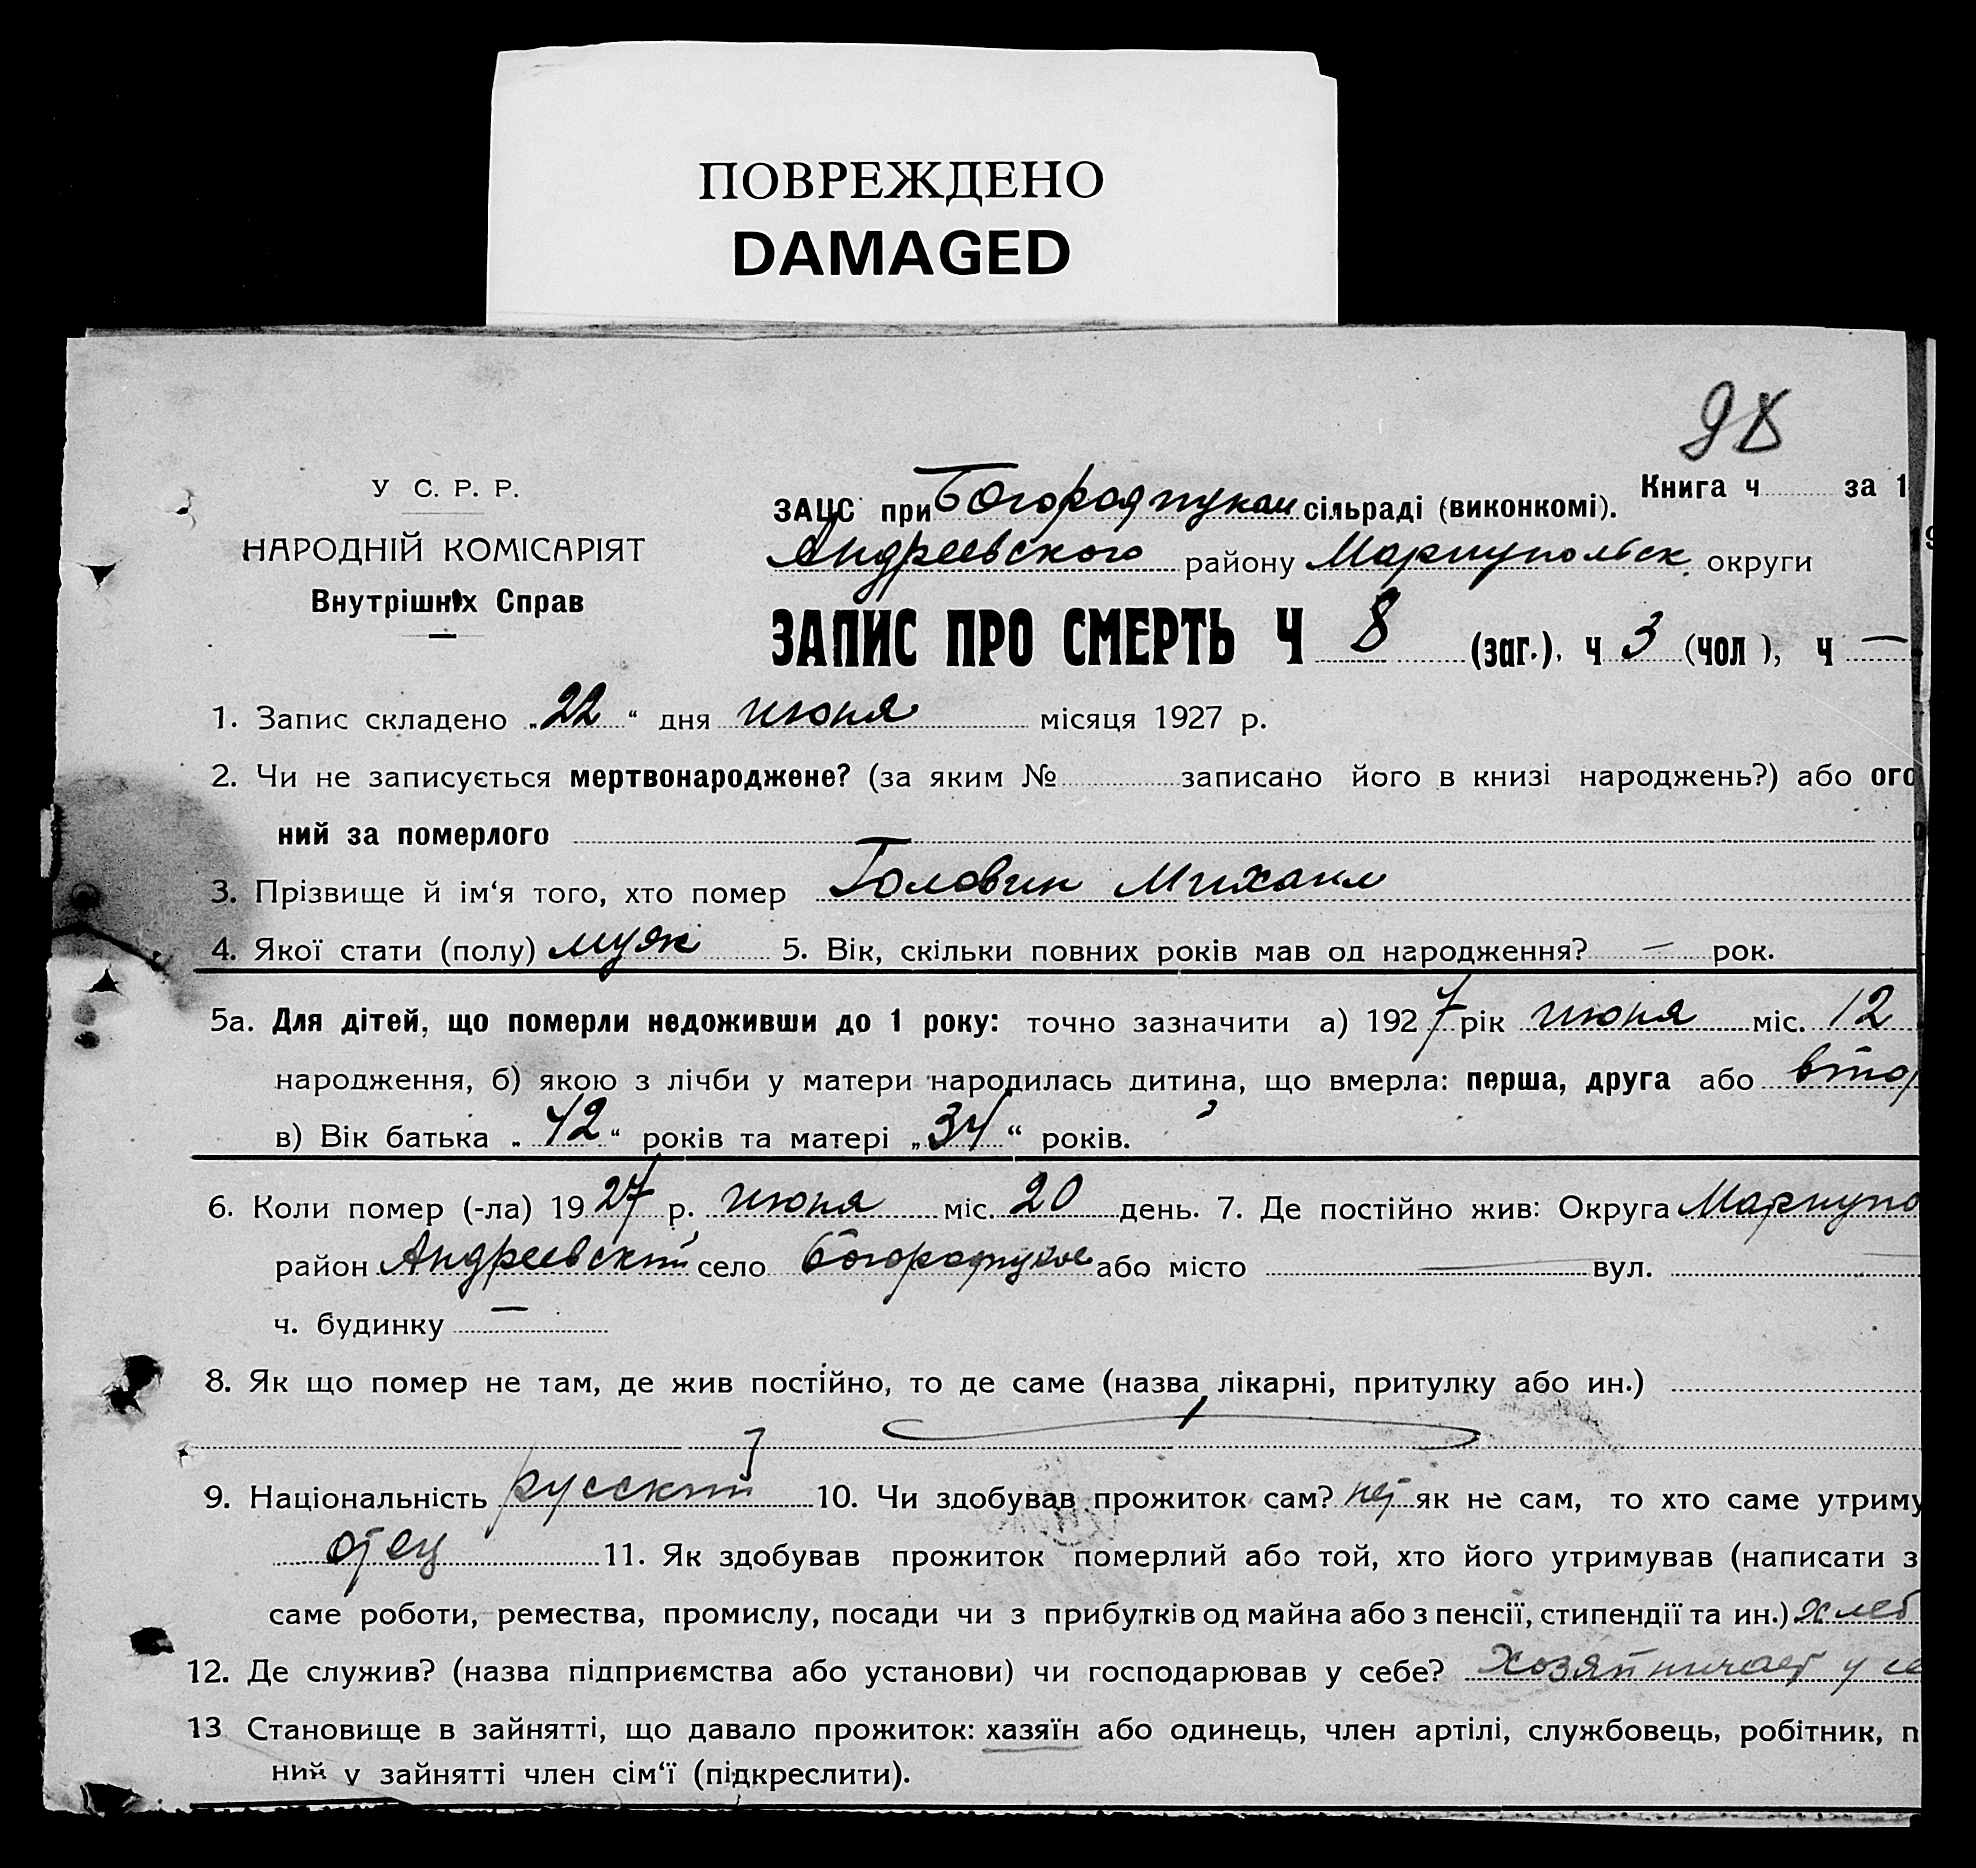 ПОВРЕЖДЕНО
DAMAGED
98
У С. Р. Р.
НАРОДНІЙ КОМІСАРІЯТ
Внутрішніх Справ
Книга ч за 1
ЗАЦС при сільраді (виконкомі).
Андреевского району Мариупольск. округи
ЗАПИС ПРО СМЕРТЬ Ч 8 (заг.). ч 3 (чол ), ч —
1. Запис складено „22“ дня июня місяця 1927 р.
2. Чи не записується мертвонароджене? (за яким № записано його в книзі народжень?) або ого
ний за померлого
3. Прізвище й ім‘я того, хто помер Головин Михаил
4. Якої стати (полу) муж 5. Вік, скільки повних років мав од народження? — рок.
5а. Для дітей, що померли недоживши до 1 року: точно зазначити а) 1927 рік июня міс. 12
народження, б) якою з лічби у матери народилась дитина, що вмерла: перша, друга або втор
в) Вік батька „42“ років та матері „34“ років.
6. Коли помер (-ла) 1927 р. июня міс. 20 день. 7. Де постійно жив: Округа Мариупо
район Андреевский село або місто — вул.
ч. будинку —
8. Як що помер не там, де жив постійно, то де саме (назва лікарні, притулку або ин.)
9. Національність русский 10. Чи здобував прожиток сам? нет як не сам, то хто саме утриму
отец 11. Як здобував прожиток померлий або той, хто його утримував (написати з
саме роботи, ремества, промислу, посади чи з прибутків од майна або з пенсії, стипендії та ин.) хлеб
12. Де служив? (назва підприємства або установи) чи господарював у себе? хозяйничает у се
13 Становище в зайнятті, що давало прожиток: хазяїн або одинець, член артілі, службовець, робітник, п
ний у зайнятті член сім‘ї (підкреслити).